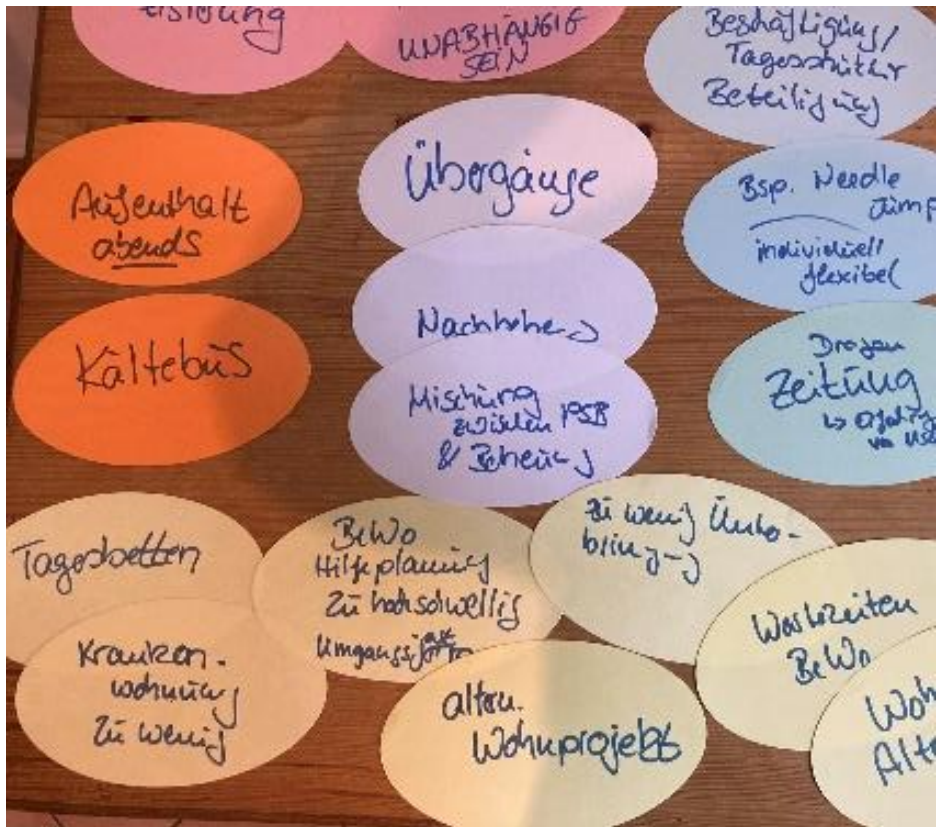 UNABHÄNGIG
SEIN
Beschäftigung/
Tagesstruktur
Beteiligung
Aufenthalt
abends
Übergänge
Bsp. Needle
individuell
flexibel
Kältebus
Nachhaltig
Mischung
zwischen PSB
& Betreuung
Drogen
Zeitung
Tagesbetten
BeWo
Hilfeplanung
zu hochschwellig
zu wenig Unter-
bringung
Kranken-
wohnung
zu wenig
altern.
Wohnprojekte
BeWo